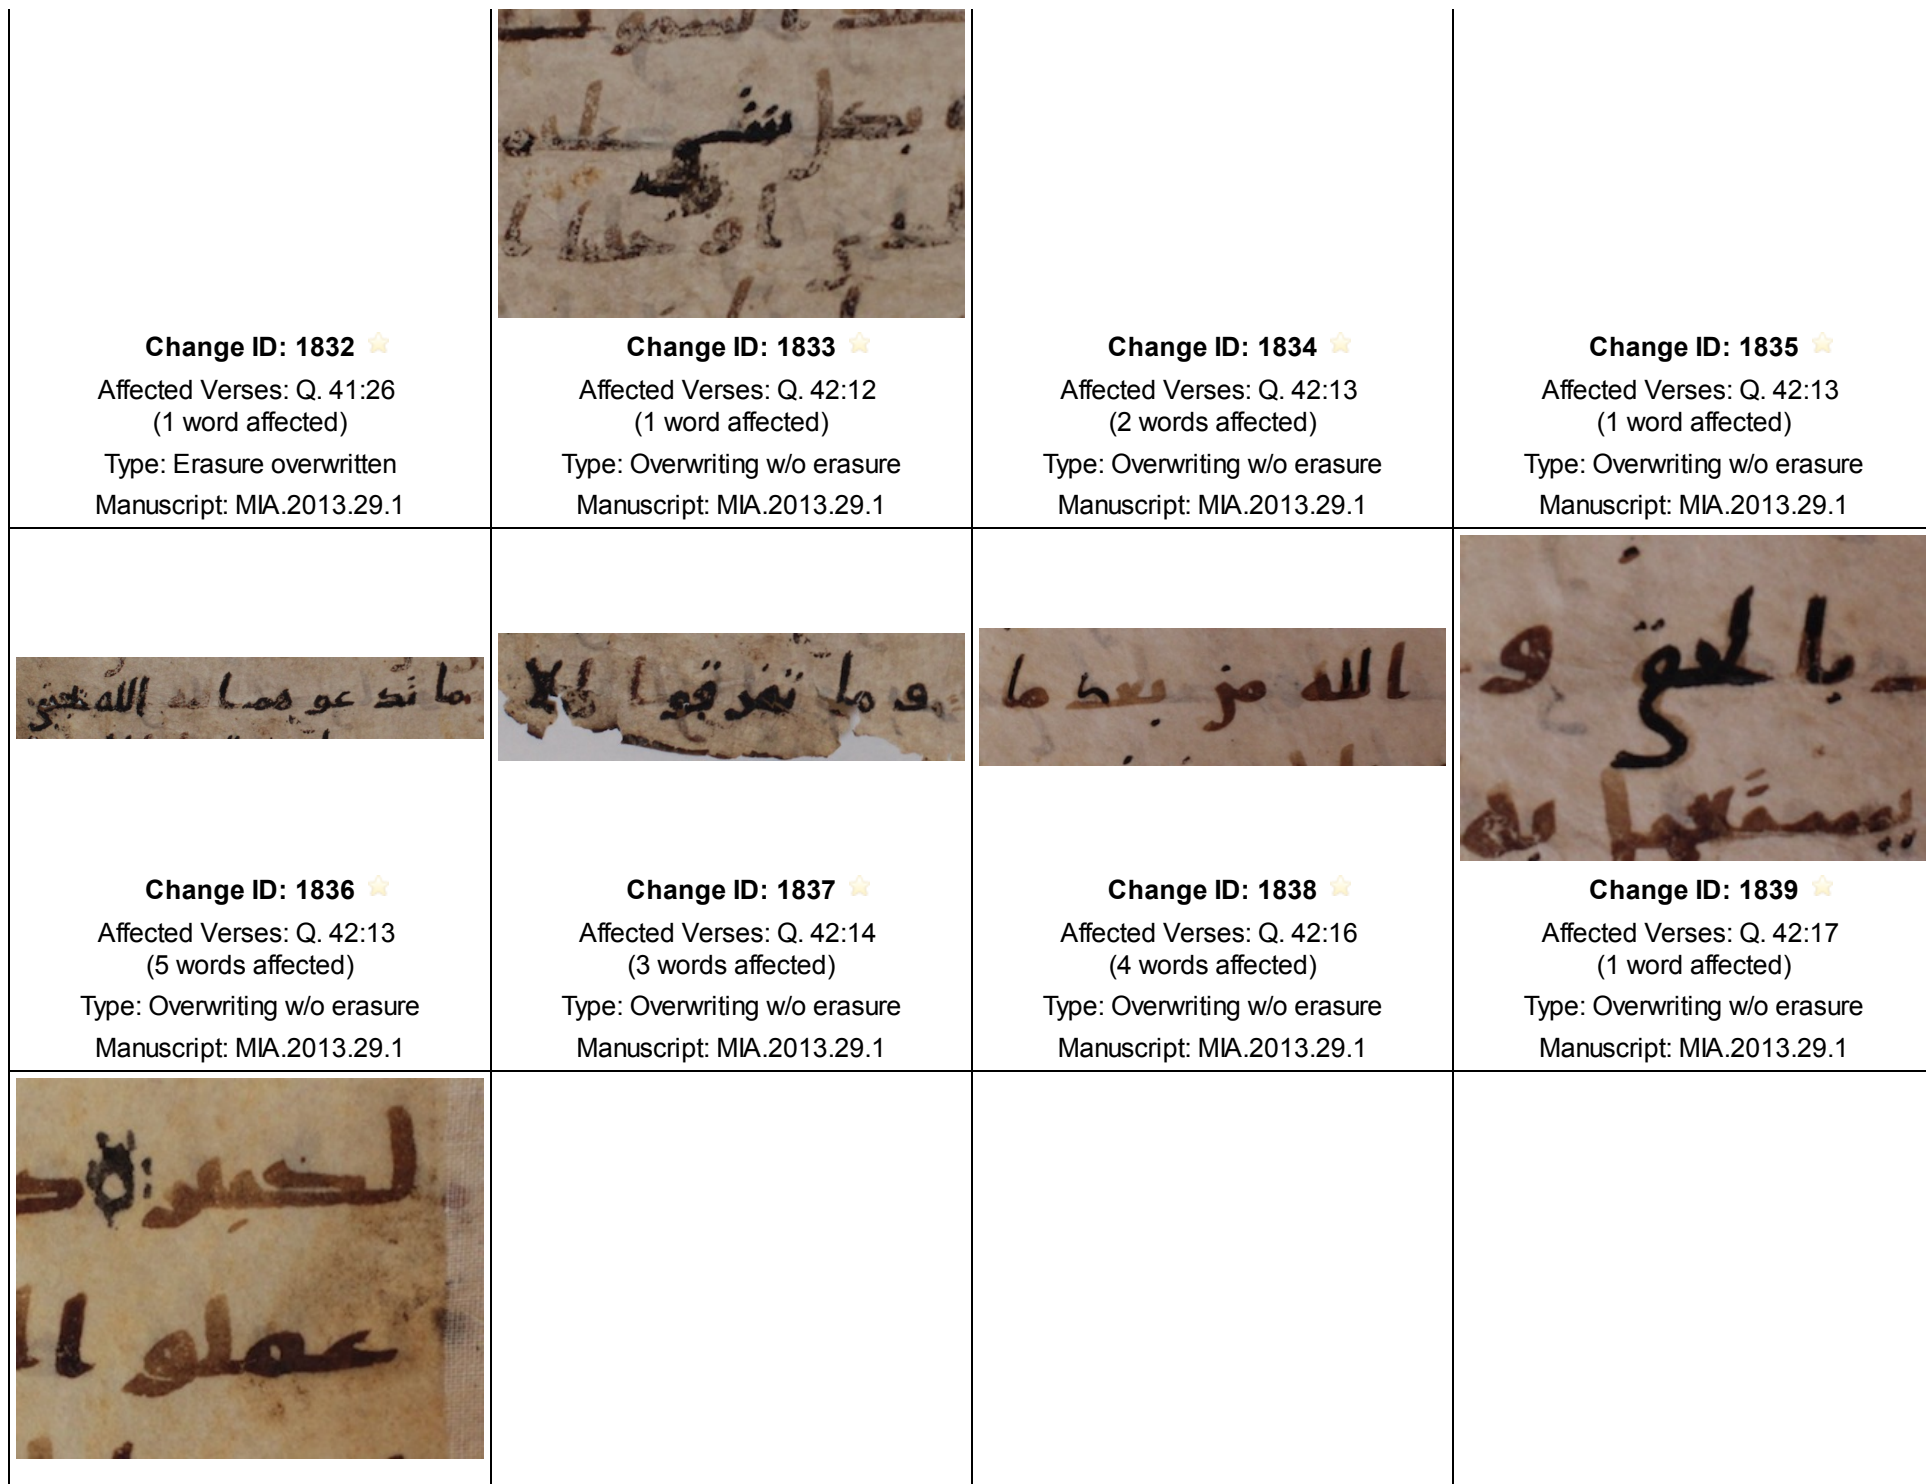 بكل شى
Change ID: 1832
Affected Verses: Q. 41:26
(1 word affected)
Type: Erasure overwritten
Manuscript: MIA.2013.29.1
Change ID: 1833
Affected Verses: Q. 42:12
(1 word affected)
Type: Overwriting w/o erasure
Manuscript: MIA.2013.29.1
Change ID: 1834
Affected Verses: Q. 42:13
(2 words affected)
Type: Overwriting w/o erasure
Manuscript: MIA.2013.29.1
Change ID: 1835
Affected Verses: Q. 42:13
(1 word affected)
Type: Overwriting w/o erasure
Manuscript: MIA.2013.29.1
ما تد عو هم ا الله
و ما تفرقوا الا
الله من بعد ما
بالحق و
يستعجل به
Change ID: 1836
Affected Verses: Q. 42:13
(5 words affected)
Type: Overwriting w/o erasure
Manuscript: MIA.2013.29.1
Change ID: 1837
Affected Verses: Q. 42:14
(3 words affected)
Type: Overwriting w/o erasure
Manuscript: MIA.2013.29.1
Change ID: 1838
Affected Verses: Q. 42:16
(4 words affected)
Type: Overwriting w/o erasure
Manuscript: MIA.2013.29.1
Change ID: 1839
Affected Verses: Q. 42:17
(1 word affected)
Type: Overwriting w/o erasure
Manuscript: MIA.2013.29.1
لكبير
عملو ا